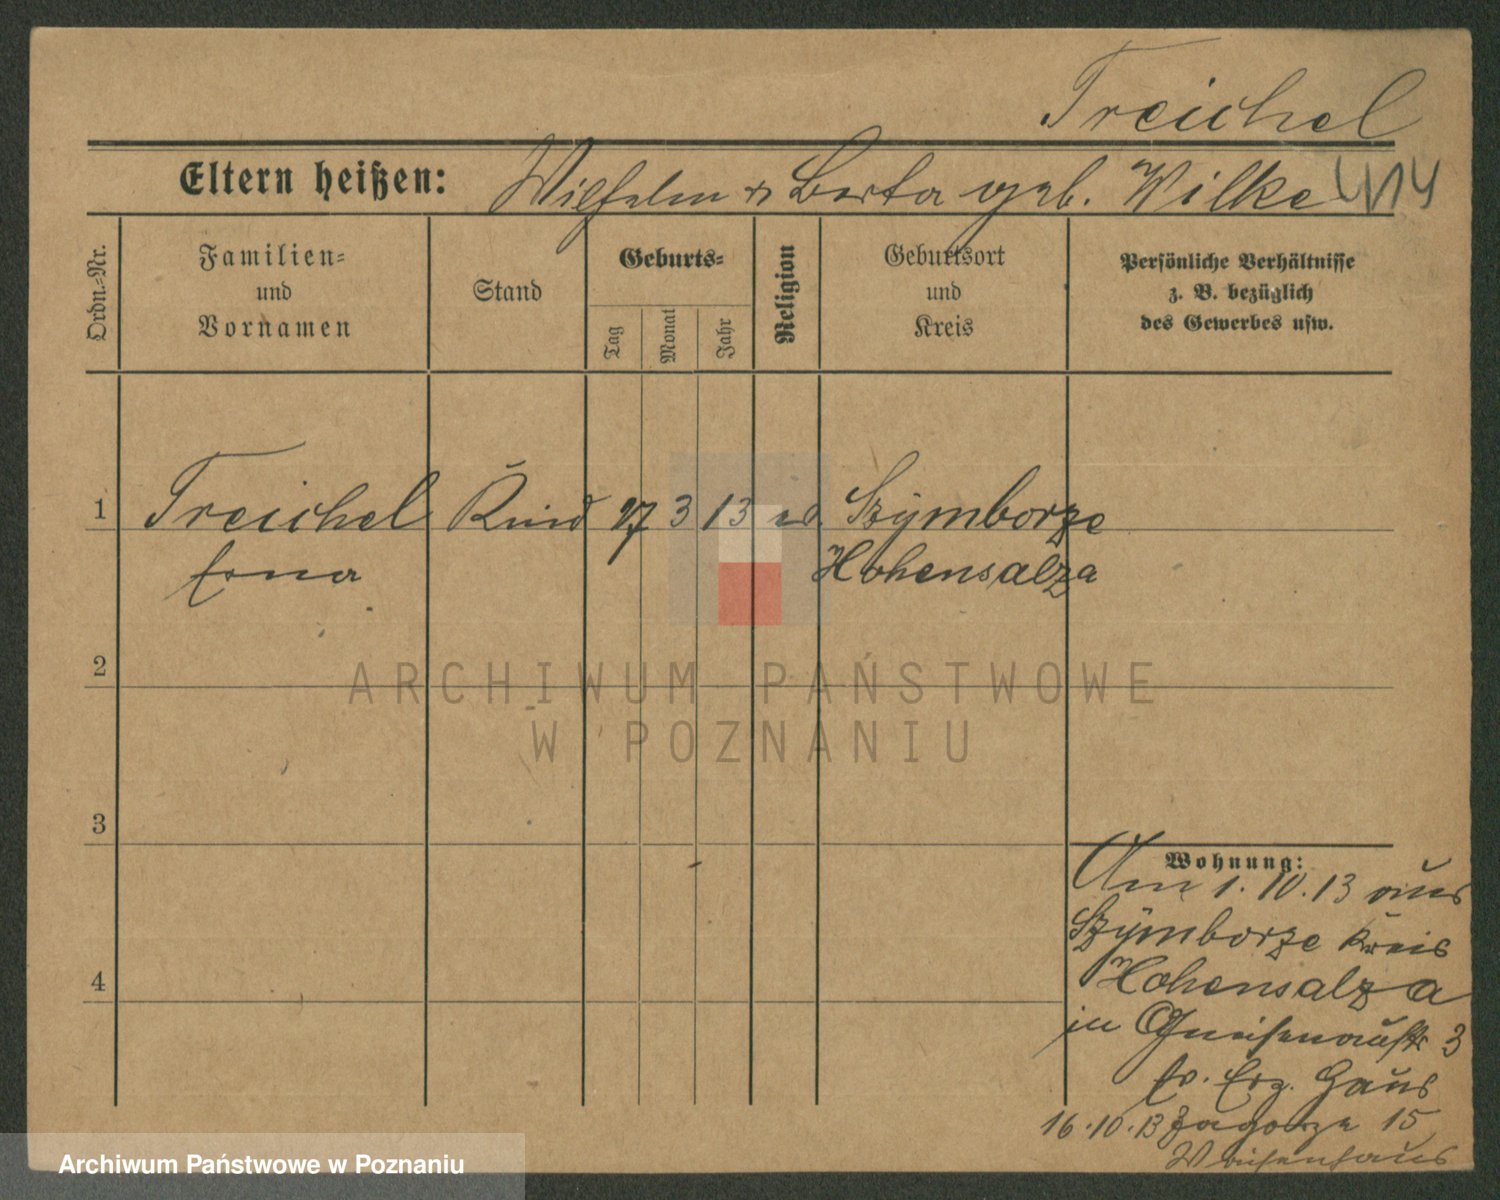 Treichel
Eltern heißen: Wilhelm & Berta geb. Wilke
Ordn.-Nr.
Familien-
und
Vornamen
Stand
Geburts-
Tag
Monat
Jahr
Religion
Geburtsort
und
Kreis
Persönliche Verhältnisse
z. B. bezüglich
des Gewerbes usw.
1 Treichel Kind 17 3 13 ev. Szymborze
Erna Hohensalza
2
3
4
Wohnung:
Am 1.10.13 aus
Szymborze Kreis
Hohensalza
in Gneisenaustr 3
Ev. Erz. Haus
16.10.13 Zagorze 15
Waisenhaus
ARCHIWUM PAŃSTWOWE
W POZNANIU
Archiwum Państwowe w Poznaniu